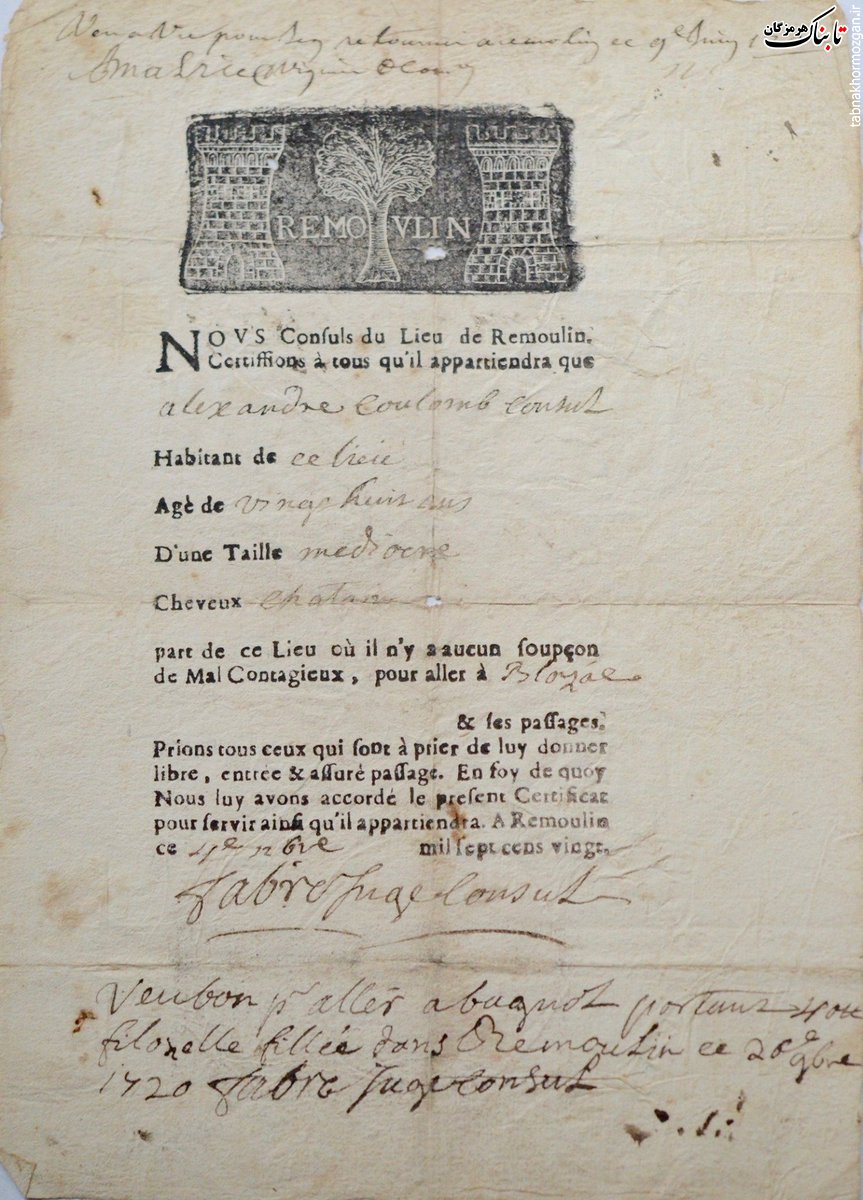 تابناک هرمزگان
tabnakhormozgan.ir
retourner
REMOVLIN
NOVS Conſuls du Lieu de Remoulin.
Certiffions à tous qu'il appartiendra que
alexandre Coulomb Consul
Habitant de ce lieu
Agè de vingt huit ans
D'une Taille mediocre
Cheveux chatain
part de ce Lieu où il n'y a aucun ſoupçon
de Mal Contagieux, pour aller à
& ſes paſſages.
Prions tous ceux qui ſont à prier de luy donner
libre, entrée & aſſuré paſſage. En foy de quoy
Nous luy avons accordé le preſent Certificat
pour ſervir ainſi qu'il appartiendra. A Remoulin
ce mil ſept cens vingt.
fabre Juge Consul
Veu bon pr aller a portant
filozelle fillée dans Remoulin ce 20e 9bre
1720 fabre Juge Consul